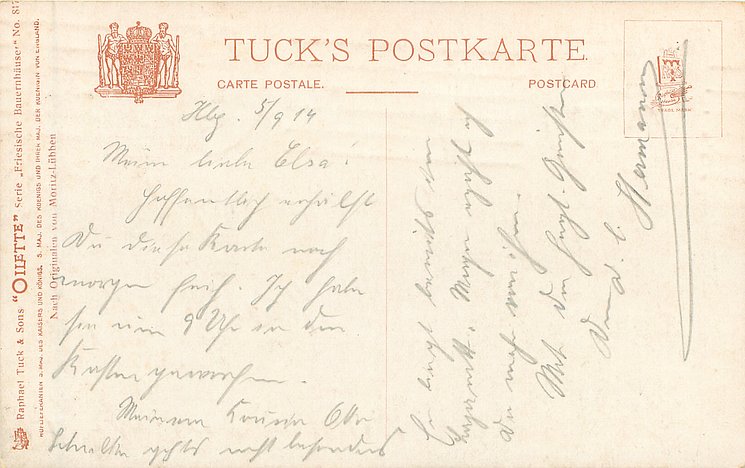 TUCK'S POSTKARTE.
CARTE POSTALE.
POSTCARD
Raphael Tuck & Sons "OILETTE" Serie „Friesische Bauernhäuser" No. 817
HOFLIEFERANTEN S. MAJ. DES KAISERS UND KÖNIGS, S. MAJ. DES KOENIGS UND IHRER MAJ. DER KOENIGIN VON ENGLAND.
Nach Originalen von Moritz-Lübben
TRADE MARK
Hbg. 5/9 14
Meine liebe Elsa!
Hoffentlich erhälst
Du diese Karte noch
morgen früh. Ich habe
sie um 9 Uhr in den
Kasten geworfen.
Meinem Cousin Otto
gehts nicht besonders
Er liegt bereits im
Lazarett. Morgen
Du mehr
Mit den
Dein l. Hermann